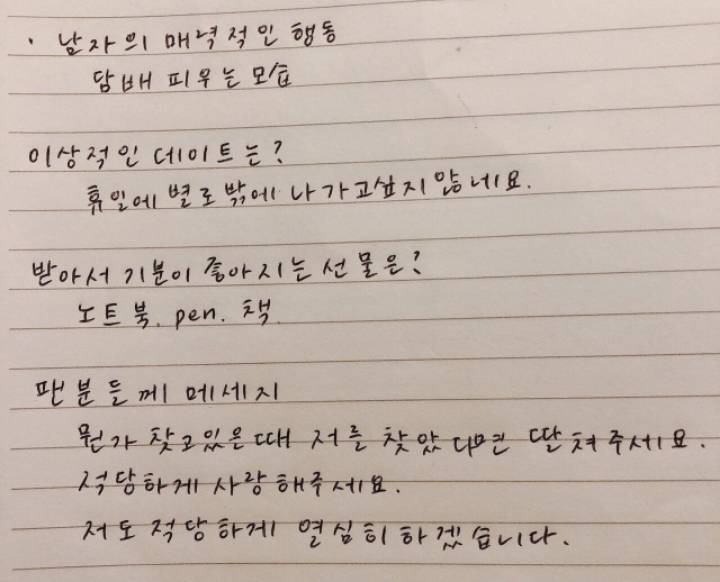 · 남자의 매력적인 행동
담배 피우는 모습
이상적인 데이트는?
휴일에 별로 밖에 나가고싶지 않네요.
받아서 기분이 좋아지는 선물은?
노트북. pen. 책
팬분들께 메세지
뭔가 찾고있은때 저를 찾았다면 딴쳐주세요.
적당하게 사랑해주세요.
저도 적당하게 열심히하겠습니다.